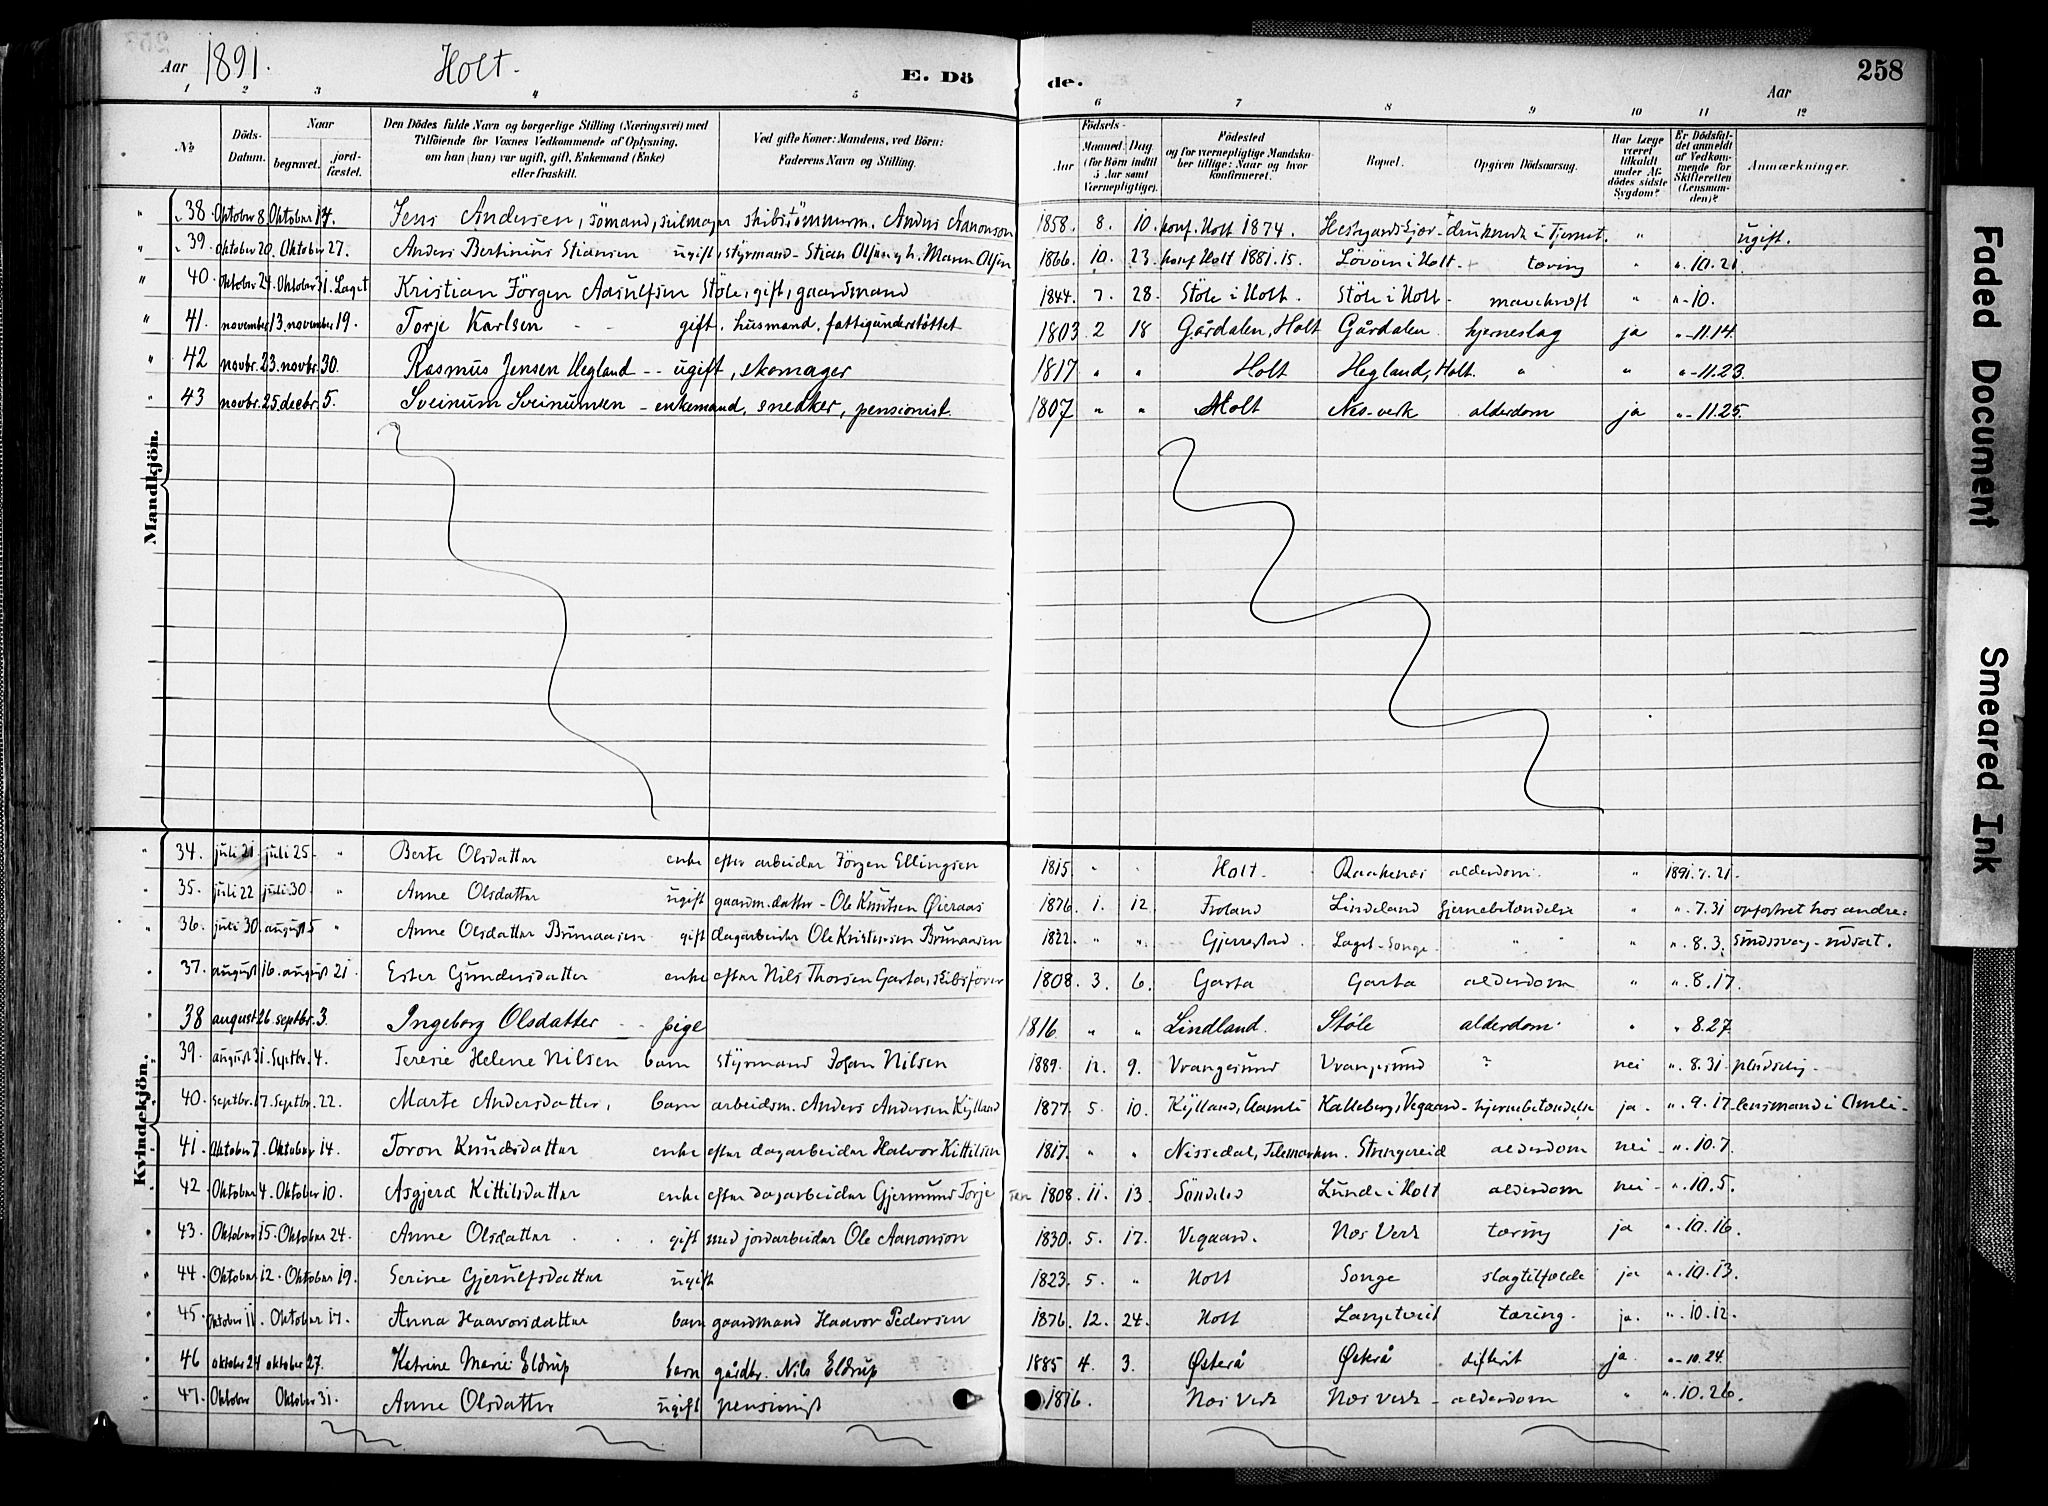 Aar 1891. Holt. E. Döde. Aar 258
1 2 3 4 5 6 7 8 9 10 11 12
№ Döds-Datum. Naar begravet. jordfæstet. Den Dödes fulde Navn og borgerlige Stilling (Næringsvei) med Tilföiende for Voxnes Vedkommende af Oplysning, om han (hun) var ugift, gift, Enkemand (Enke) eller fraskilt. Ved gifte Koner: Mandens, ved Börn: Faderens Navn og Stilling. Födsels- Aar Maaned. Dag (for Börn indtil 5 Aar samt Værnepligtige). Födested og for værnepligtige Mandskaber tillige: Naar og hvor konfirmeret. Bopæl. Opgiven Dödsaarsag. Har Læge været tilkaldt under Afdödes sidste Sygdom? Er Dödsfaldet anmeldt af Vedkommende for Skifteretten (Lensmanden)? Anmærkninger.
Mandkjön.
" 38. Oktober 8 Oktober 14. Jens Andersen, sömand, seilmager skibstömmerm. Anders Aanonson 1858. 8. 10. konf. Holt 1874. druknede i Tjernet. " ugift.
" 39. Oktober 20. Oktober 27. Anders Bertinius Stiansen ugift, styrmand - Stian Olsen og h. Maren Olsen 1866. 10. 23. konf Holt 1881.15. Lövöen i Holt - tæring " ". 10. 21
" 40. Oktober 24. Oktober 31. Laget Kristian Jörgen Aasulfsen Stöle, gift, gaardmand 1844. 7. 28. Stöle i Holt. Stöle i Holt - mavekræft " " - 10.
" 41. november 13. november 19. Torje Karlsen - - gift. husmand. fattigunderstöttet 1803 2 18 Gårdalen, Holt Gårdalen hjerneslag ja " - 11.14.
" 42 novbr. 23. novbr. 30. Rasmus Jensen Hegland - - ugift, skomager 1817 " " Holt Hegland, Holt. " " " - 11.23.
" 43 novbr. 25. decbr. 5. Sveinum Sveinumsen - enkemand, snedker, pensionist. 1807 " " Holt Nes-verk alderdom ja " - 11.25.
Kvindekjön.
" 34. juli 21 juli 25 - " Berte Olsdatter enke efter arbeider Jörgen Ellingsen 1815. " " Holt. Raakenes alderdom. " 1891. 7. 21.
" 35. juli 22 juli 30. " Anne Olsdatter ugift gaardm. datter - Ole Knutsen Øieraas 1876. 1. 12. Froland Lindeland hjernebetændelse " ". 7. 31 opfostret hos andre.
" 36. juli 30. august 5 " Anne Olsdatter Brunaasen gift dagarbeider Ole Kristensen Brunaasen 1822. " ". Gjerrestad. Laget - Songe. " " " ". 8. 3. sindssvag - udsat.
" 37. august 16. august 21 Ester Gundersdatter enke efter Nils Thorsen Garta, skibsförer 1808. 3. 6. Garta Garta alderdom " ". 8. 17.
" 38 august 26. septbr. 3. Ingeborg Olsdatter - - pige 1816 " " Lindland. Stöle alderdom " " 8. 27
" 39. august 31. Septbr. 4. Teresie Helene Nilsen barn styrmand Johan Nilsen 1889. 12. 9. Vrangesund Vrangesund ? nei ". 8. 31. pludselig -
" 40. septbr. 17. Septbr. 22. Marte Andersdatter, barn arbeidsm. Anders Andersen Kylland 1877. 5. 10. Kylland, Aamli Kalleberg, Vegaard - hjernebetændelse ja. ". 9. 17. lensmand i Amli -
" 41. Oktober 7. Oktober 14. Toron Knudsdatter enke efter dagarbeider Halvor Kittilsen 1817. " " Nissedal, Telemarken. Strengereid alderdom nei - ". 10. 7.
" 42 Oktober 4. Oktober 10. Asgjerd Kittilsdatter enke efter dagarbeider Gjermund Torje sen 1808. 11. 13. Söndeled Lunde i Holt alderdom nei - ". 10. 5.
" 43. Oktober 15. Oktober 24. Anne Olsdatter . . . gift med jordarbeider Ole Aanonson 1830. 5. 17. Vegaard. Nes Verk tæring ja ". 10. 16.
" 44. Oktober 12. Oktober 19. Serine Gjerulfsdatter ugift 1823. 5. " Holt Songe slagtilfælde ja ". 10. 13.
" 45. Oktober 11. Oktober 17. Anna Haavorsdatter barn gaardmand Haavor Pedersen 1876. 12. 24. Holt Langetveit tæring. ja. ". 10. 12.
" 46 oktober 24 oktober 27. Katrine Marie Eldrup barn gårdbr. Nils Eldrup 1885 4. 3. Østerå Østerå difterit ja ". 10. 24.
" 47. Oktober Oktober 31. Anne Olsdatter ugift pensionist 1816. Nes Verk Nes Verk - alderdom " ". 10. 26.
Faded Document
Smeared Ink